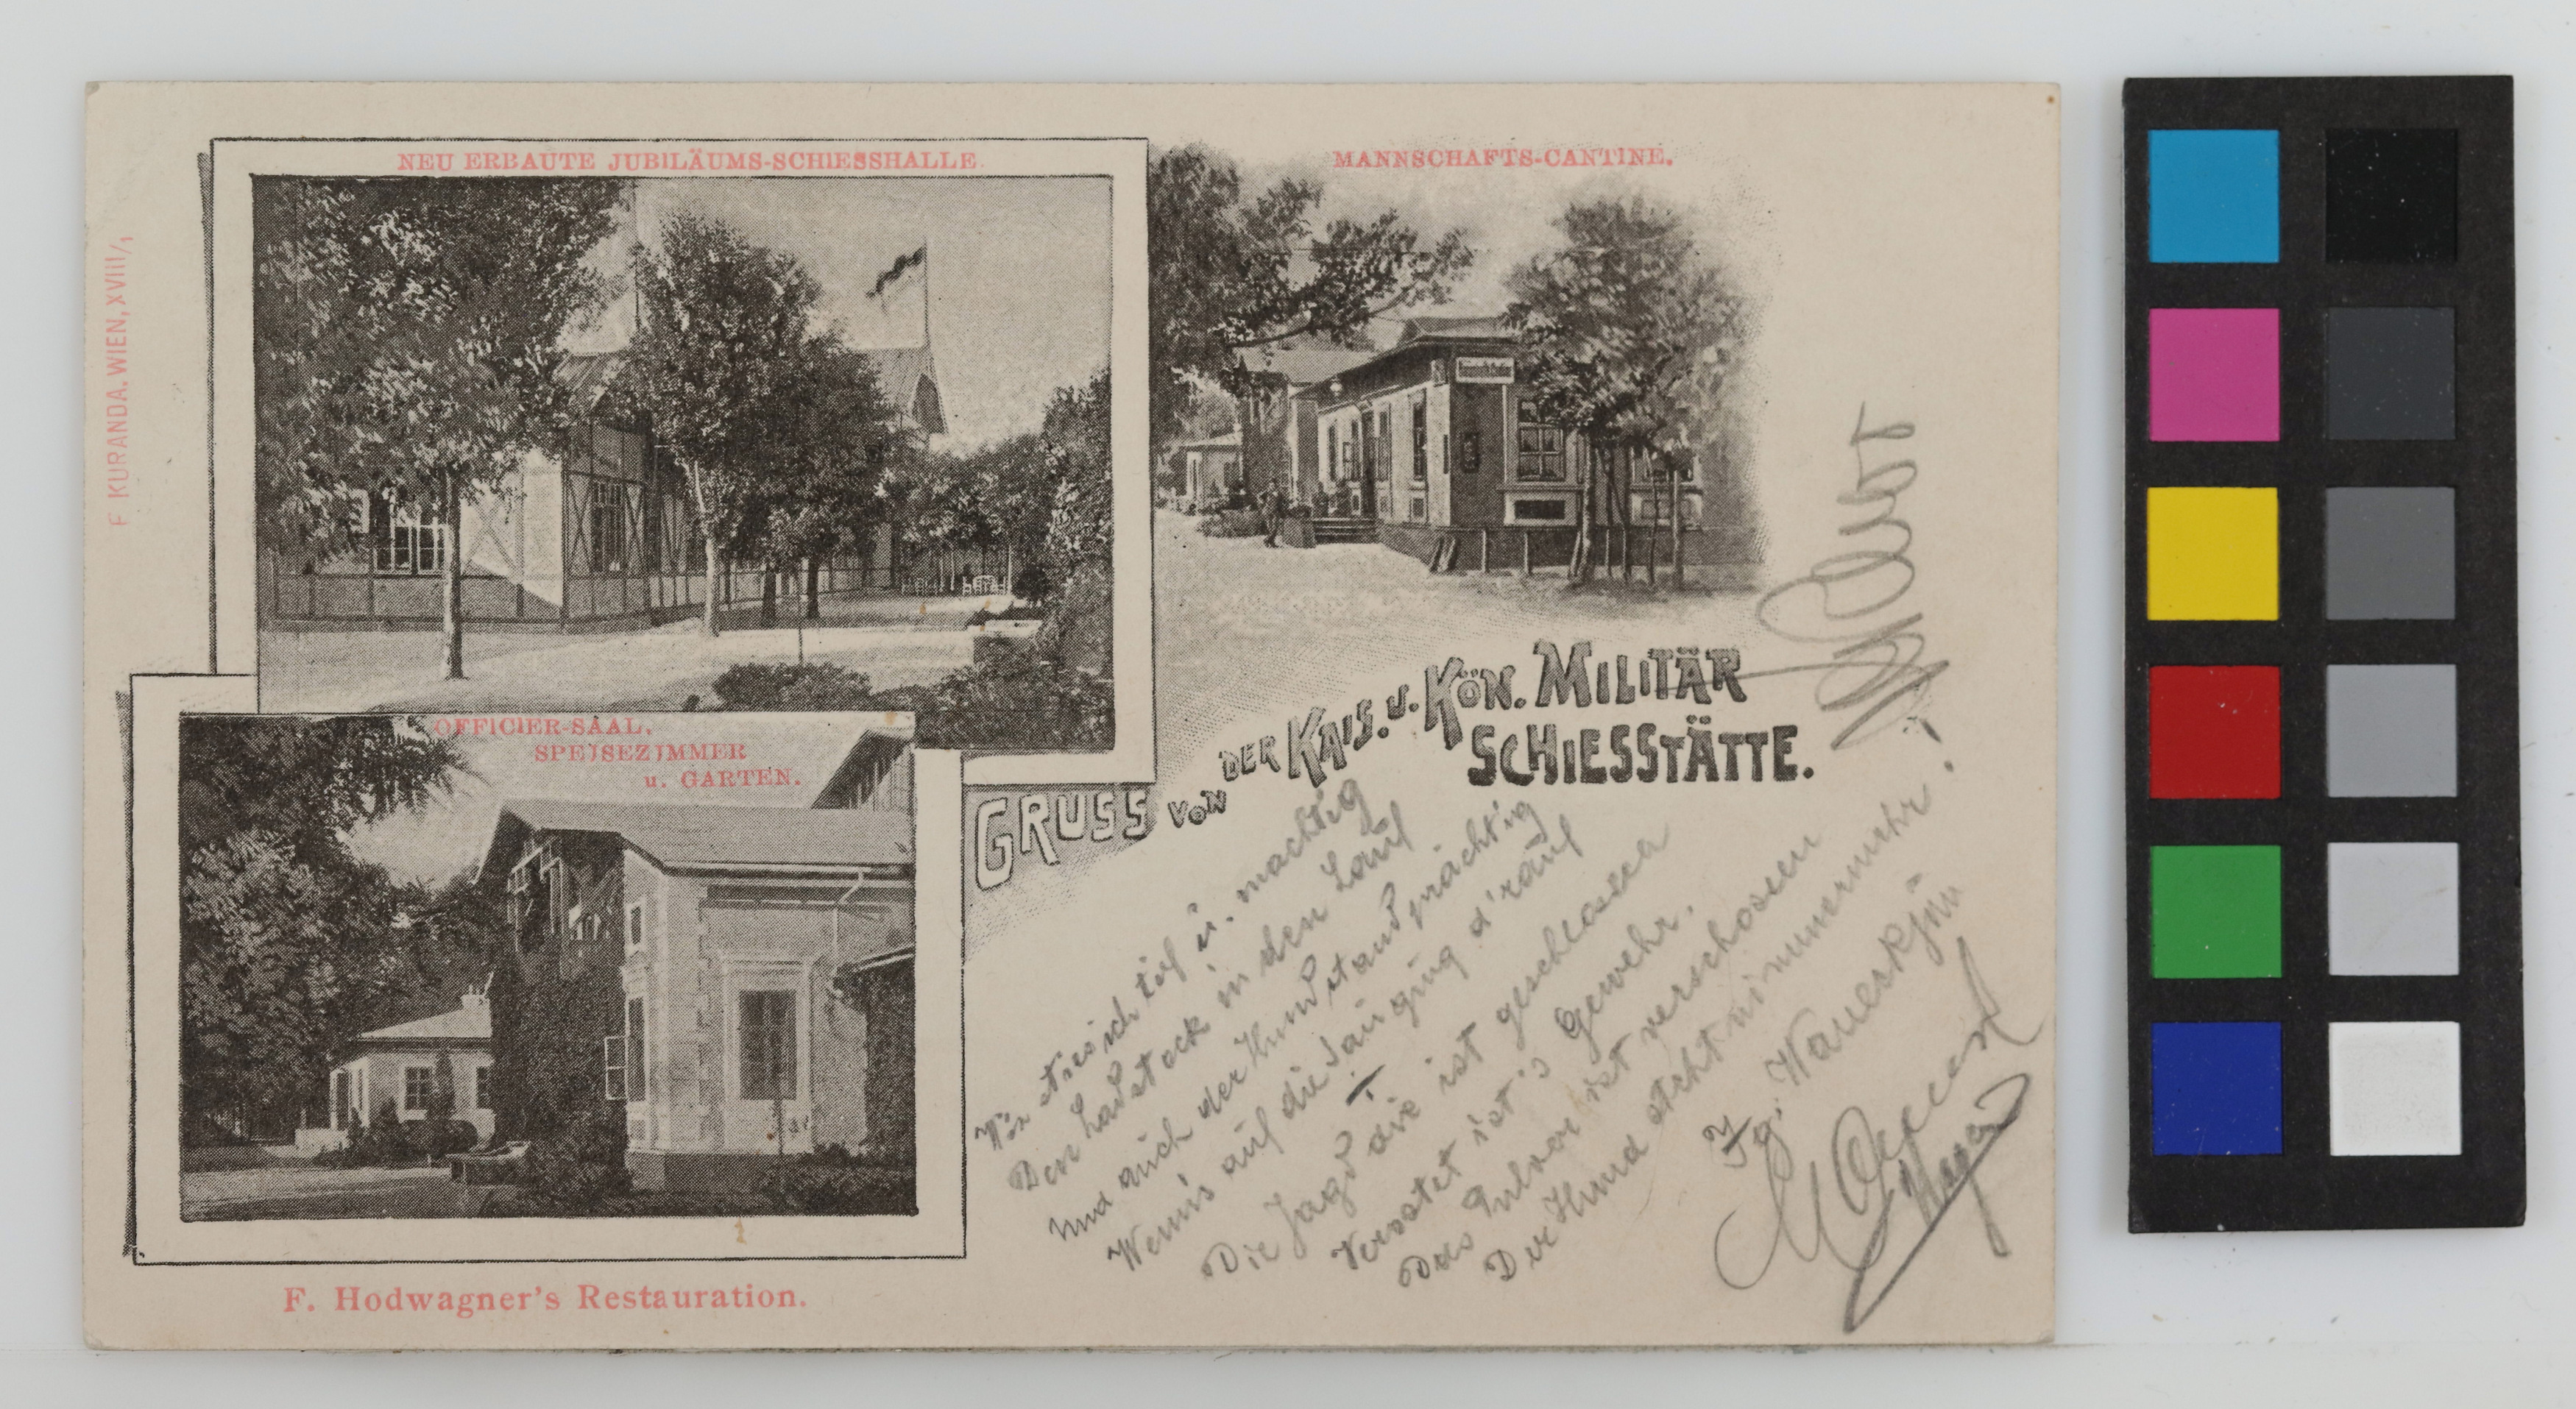 NEU ERBAUTE JUBILÄUMS-SCHIESSHALLE.
MANNSCHAFTS-CANTINE.
F. KURANDA. WIEN, XVIII/1
OFFICIER-SAAL.
SPEISEZIMMER
u. GARTEN.
GRUSS VON DER KAIS. U. KÖN. MILITÄR
SCHIESSSTÄTTE.
F. Hodwagner's Restauration.
stiess ich tief u. mächtig
Den Ladstock in den Lauf
Und auch der Hund stand prächtig
auf die ging d'rauf
Die Jagd die ist geschlossen
ist's Gewehr.
Das Pulver ist verschossen
Der Hund steht nimmermehr!